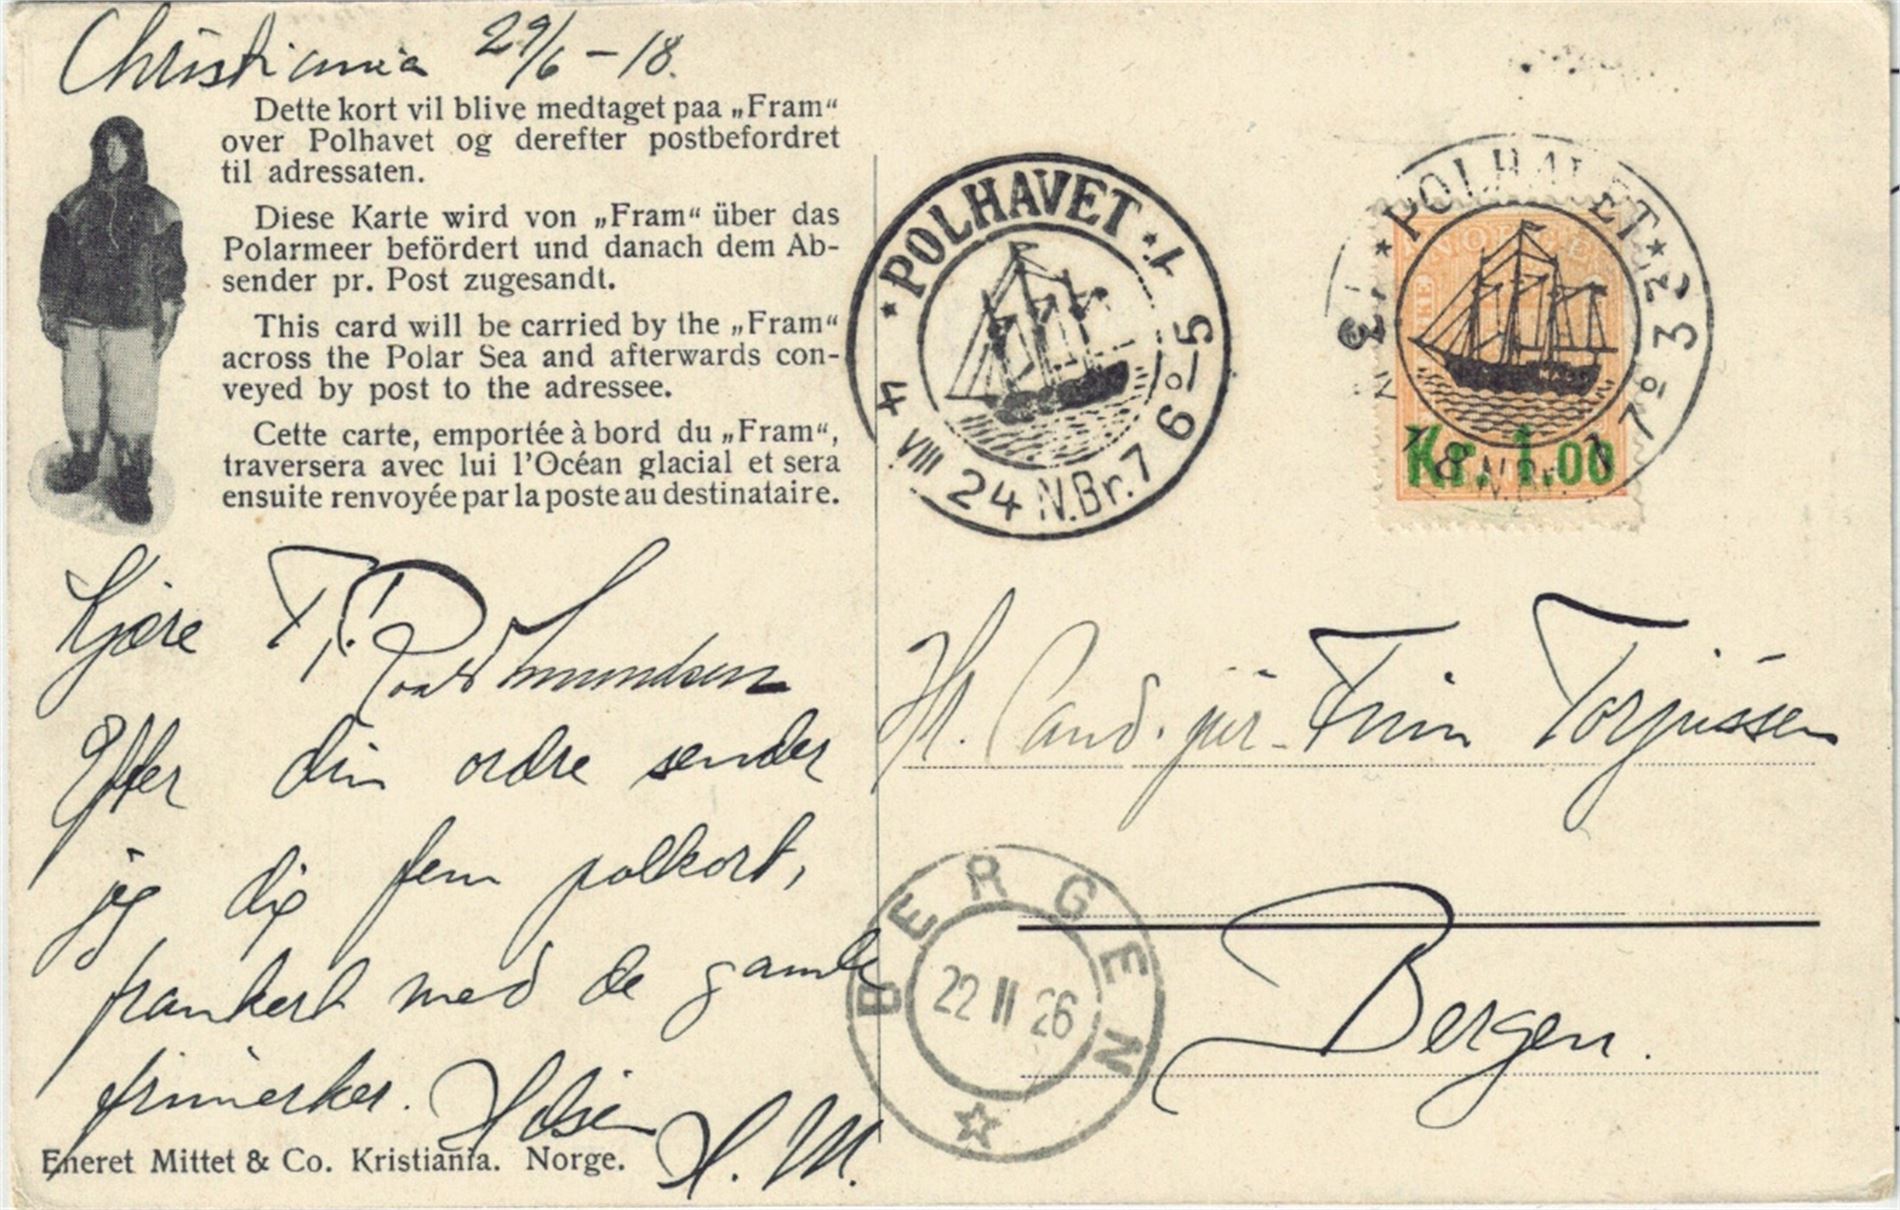 Christiania 29/6 - 18.
Dette kort vil blive medtaget paa „Fram“
over Polhavet og derefter postbefordret
til adressaten.
Diese Karte wird von „Fram“ über das
Polarmeer befördert und danach dem Ab-
sender pr. Post zugesandt.
This card will be carried by the „Fram“
across the Polar Sea and afterwards con-
veyed by post to the adressee.
Cette carte, emportée à bord du „Fram“,
traversera avec lui l'Océan glacial et sera
ensuite renvoyée par la poste au destinataire.
Kjære T.T.
Roald Amundsen
Efter din ordre sender
jeg dig fem polkort,
frankert med de gamle
frimerker. Hilsen
H. M.
Eneret Mittet & Co. Kristiania. Norge.
POLHAVET
4 VIII 24 N.Br. 76º-5
POLHAVET
N.Br. 7º 32
NORGE
Kr. 1.00
Hr. Cand. jur. Finn Torjussen
Bergen.
BERGEN
22 II 26